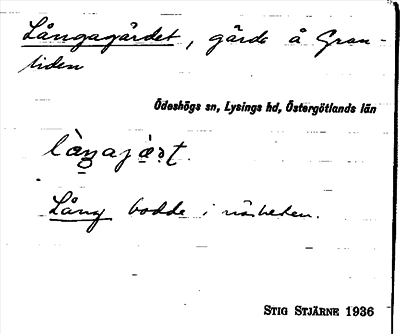 Långagärdet, gärde å Gran-
liden
Ödeshögs sn, Lysings hd, Östergötlands län
Lång bodde i närheten.
STIG STJÄRNE 1936